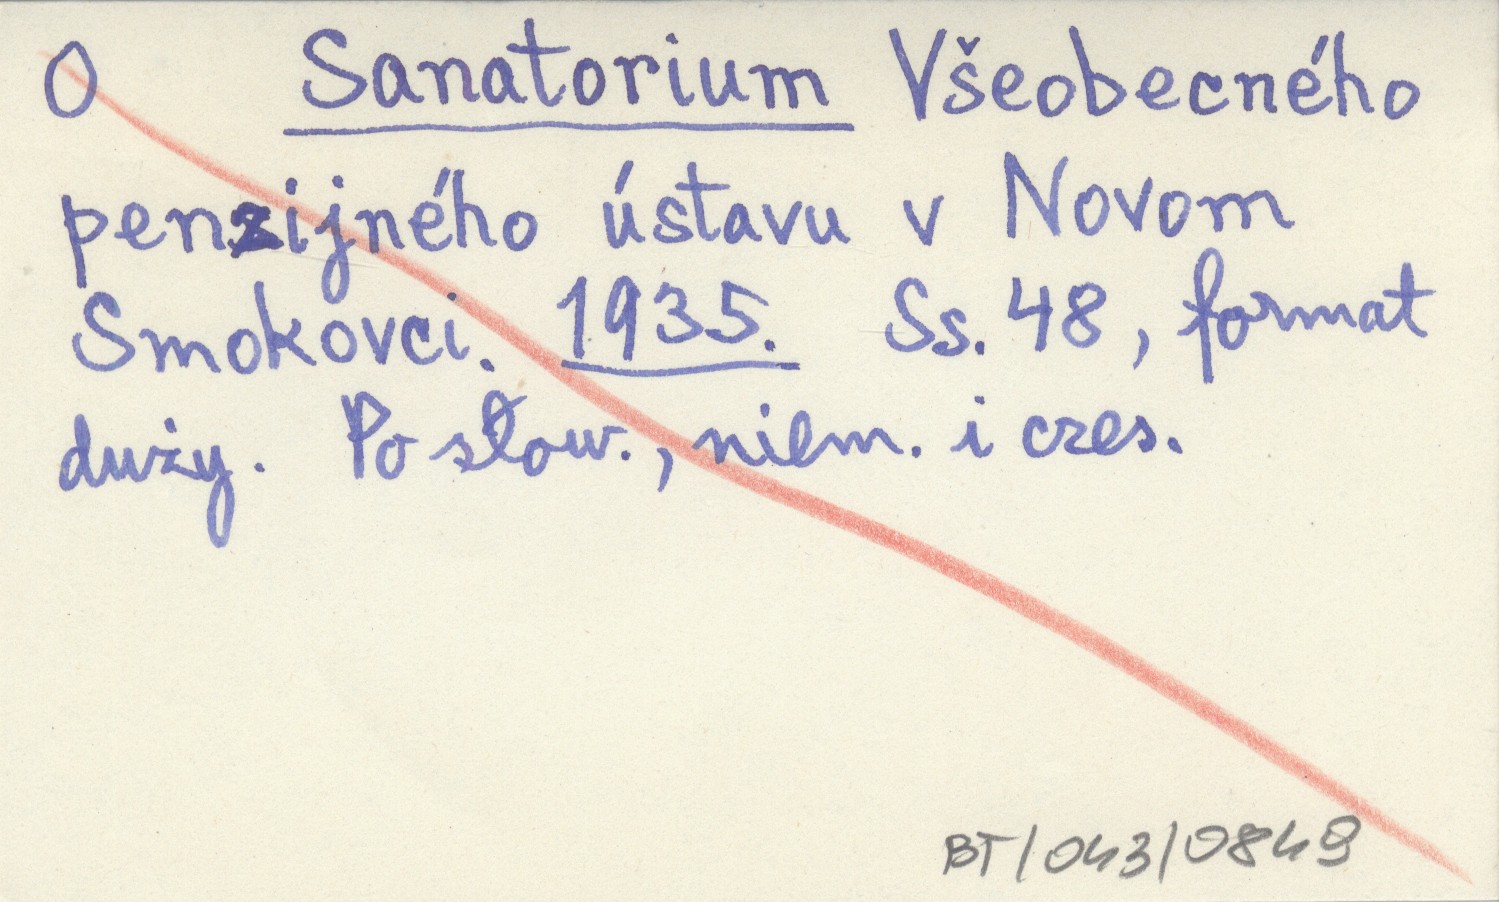 O Sanatorium Všeobecného
penzijného ústavu v Novom
Smokovci. 1935. Ss. 48, format
duży. Po słow., niem. i czes.
BT/043/0849